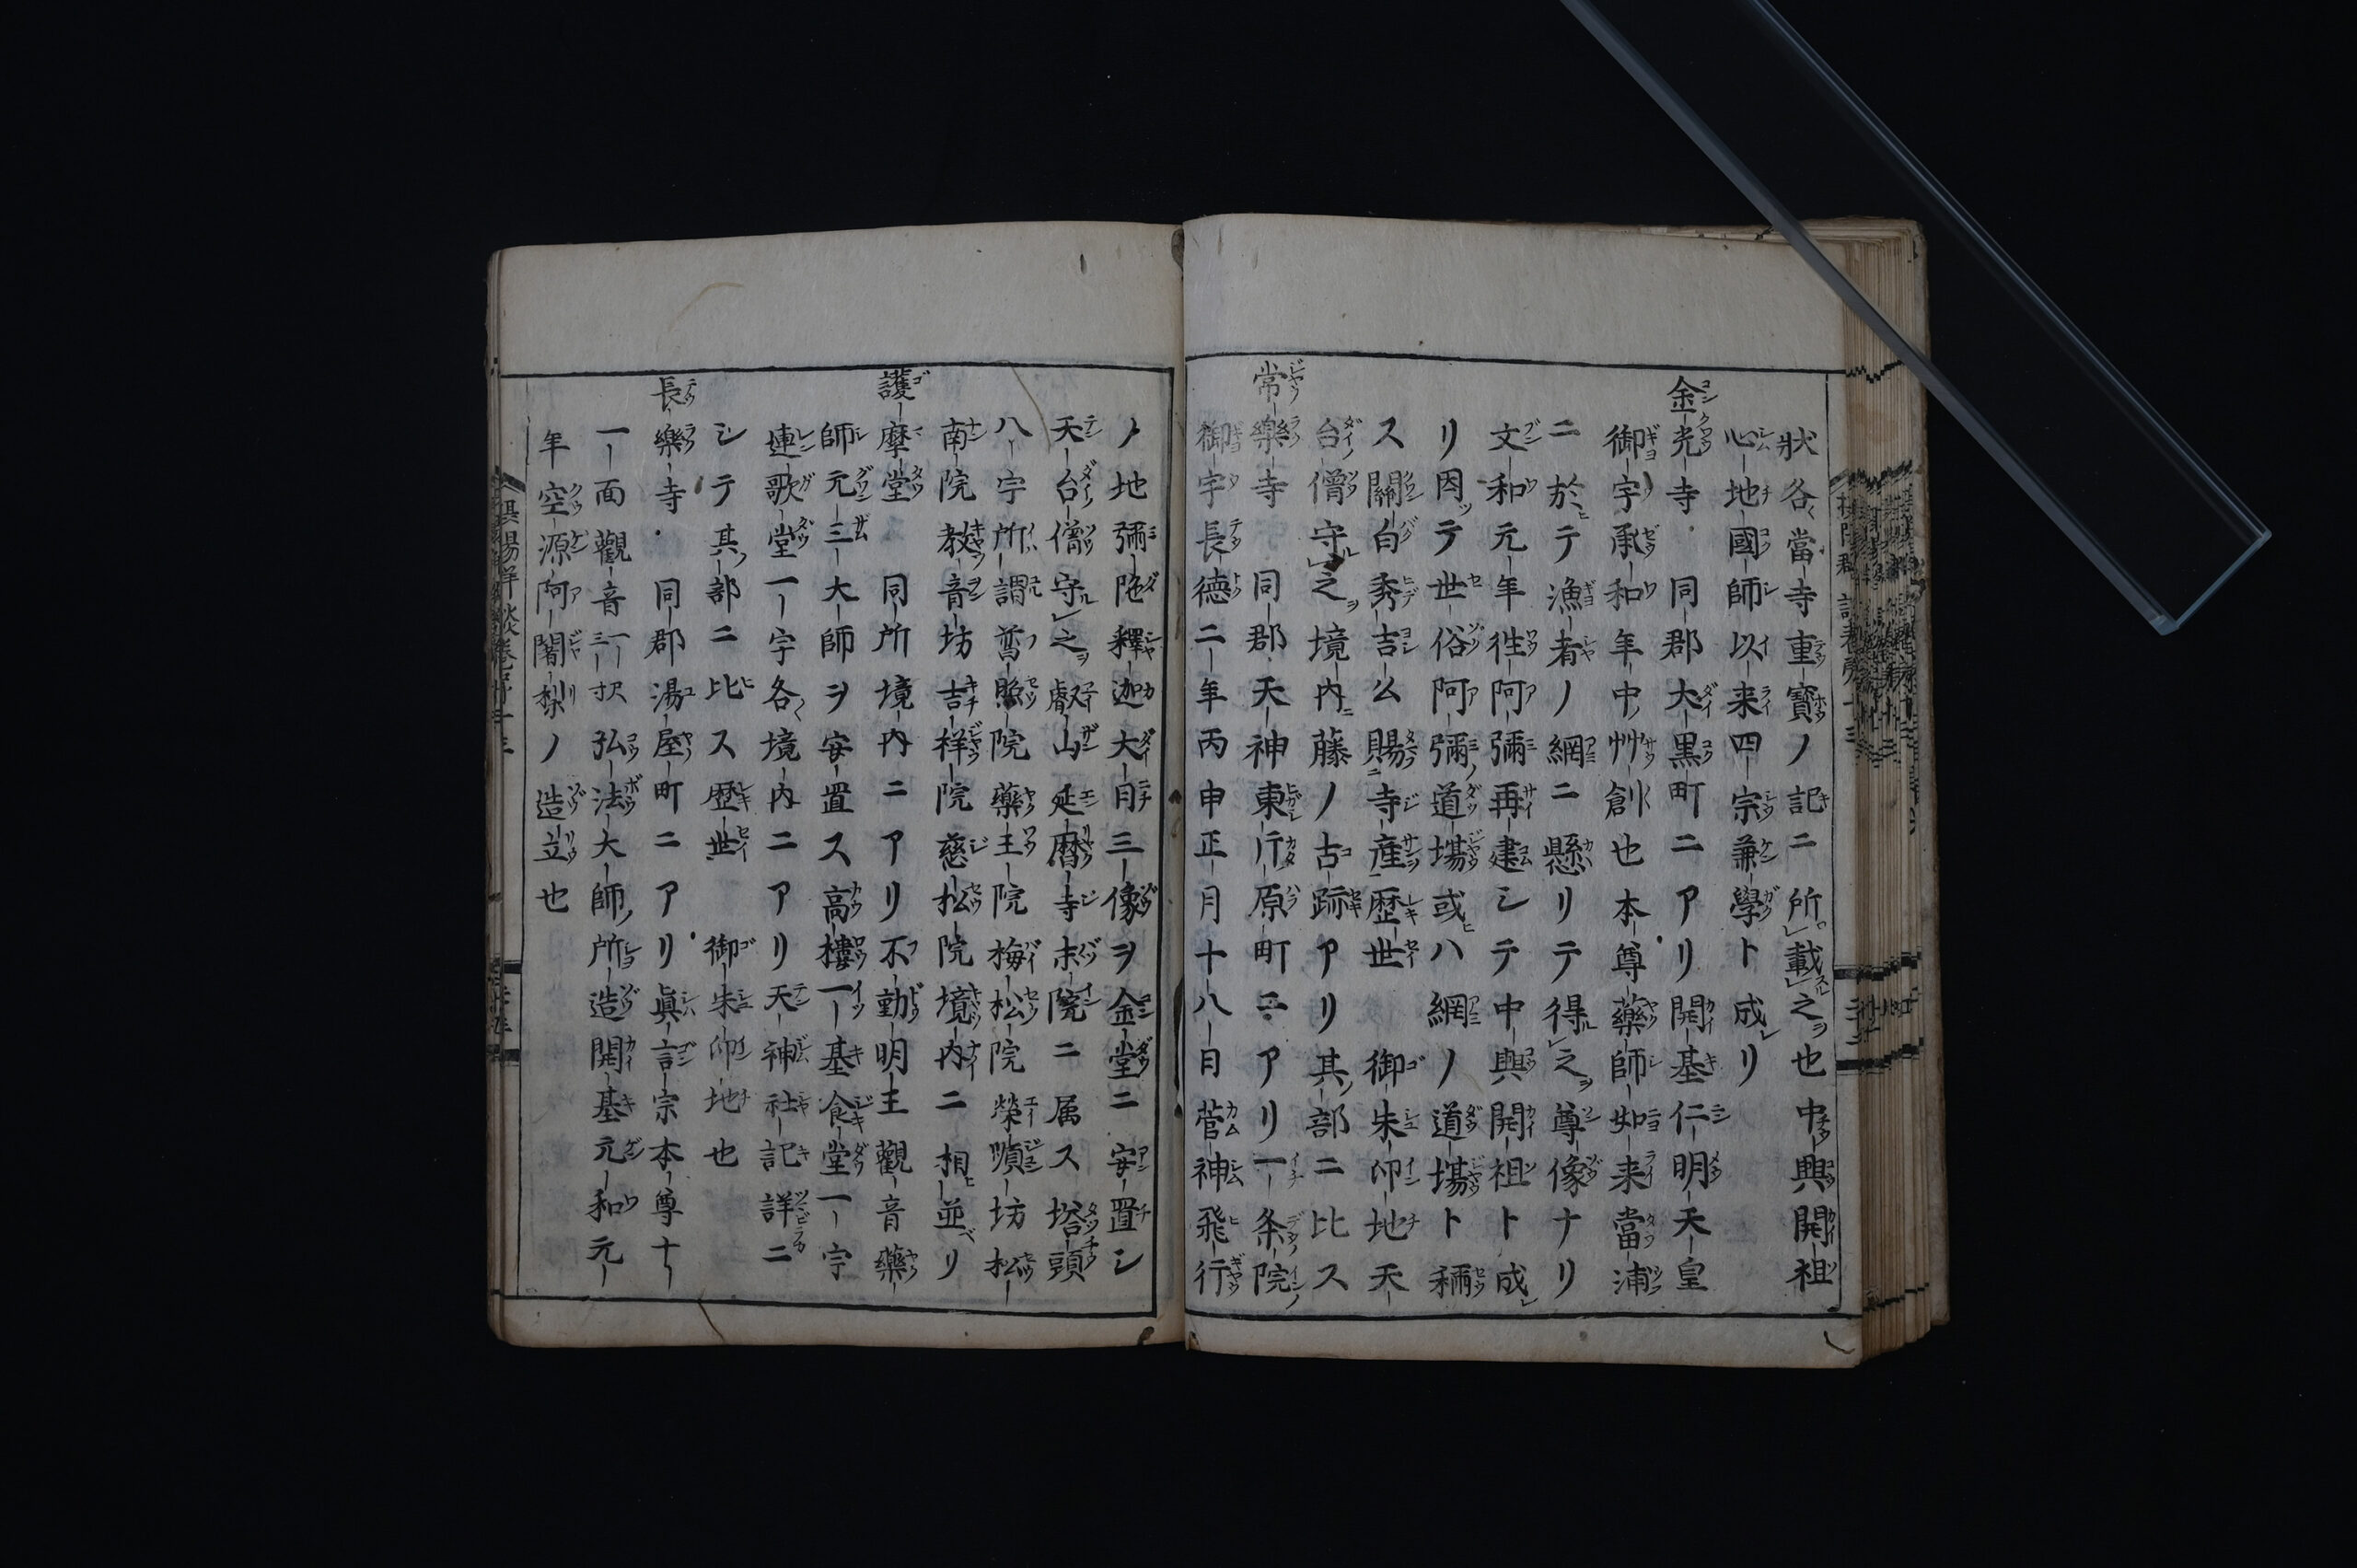 狀各當寺重寶ノ記ニ所載之也中興開祖
心地國師以来四宗兼學ト成リ
金光寺 同郡大黒町ニアリ開基仁明天皇
御宇承和年中艸創也本尊藥師如来當浦
ニ於テ漁者ノ網ニ懸リテ得之尊像ナリ
文和元年徃阿彌再建シテ中興開祖ト成
リ因テ世俗阿彌道場或ハ網ノ道場ト稱
ス關白秀吉公賜寺産歴世御朱印地天
台僧守之境内藤ノ古跡アリ其部ニ比ス
常樂寺 同郡天神東片原町ニアリ一条院
御宇長徳二年丙申正月十八日菅神飛行
ノ地彌陁釋迦大日三像ヲ金堂ニ安置シ
天台僧守之叡山延暦寺末院ニ属ス塔頭
八宇所謂普照院藥王院梅松院榮順坊松
南院教音坊吉祥院慈松院境内ニ相並リ
護摩堂 同所境内ニアリ不動明王觀音藥
師元三大師ヲ安置ス高樓一基食堂一宇
連歌堂一宇各境内ニアリ天神社記詳ニ
シテ其部ニ比ス歴世御朱印地也
長樂寺 同郡湯屋町ニアリ眞言宗本尊十
一面觀音一三尺弘法大師所造開基元和元
年空源阿闍梨ノ造立也